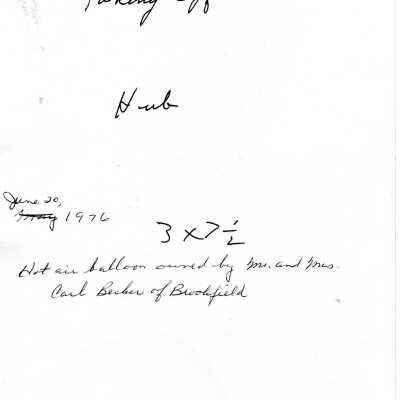 Taking off
Hub
June 20,
May 1976
3 x 7 1/2
Hot air balloon owned by Mr. and Mrs.
Carl Becker of Brookfield